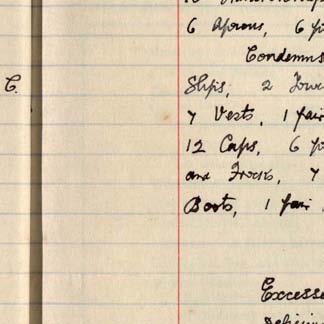 6 Aprons, 6
Condemn
C. Slips, 2
7 Vests, 1 pair
12 Caps, 6
and Frocks, 7
Boots, 1 pair
Excesse